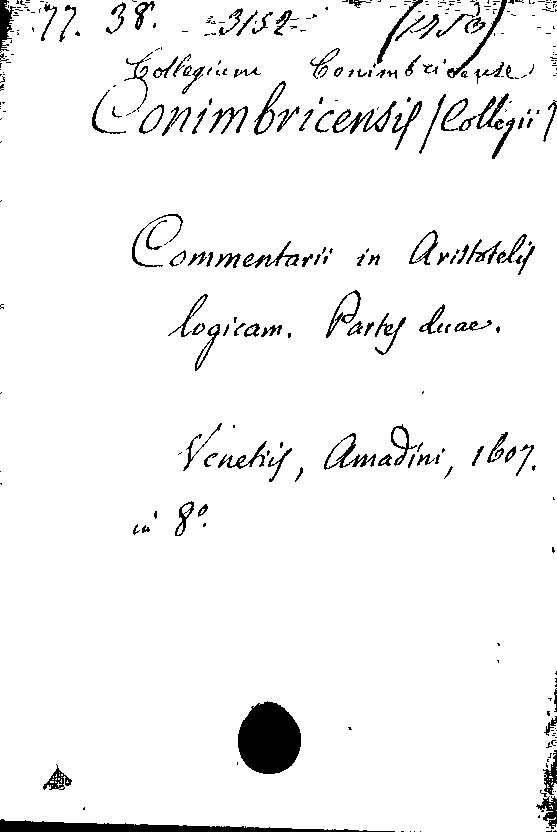 77. 38. 3152
Collegium Conimbricense
Conimbricensis (Collegii)
Commentarii in Aristotelis
logicam. Partes duae.
Venetiis, Amadini, 1607.
in 8º.